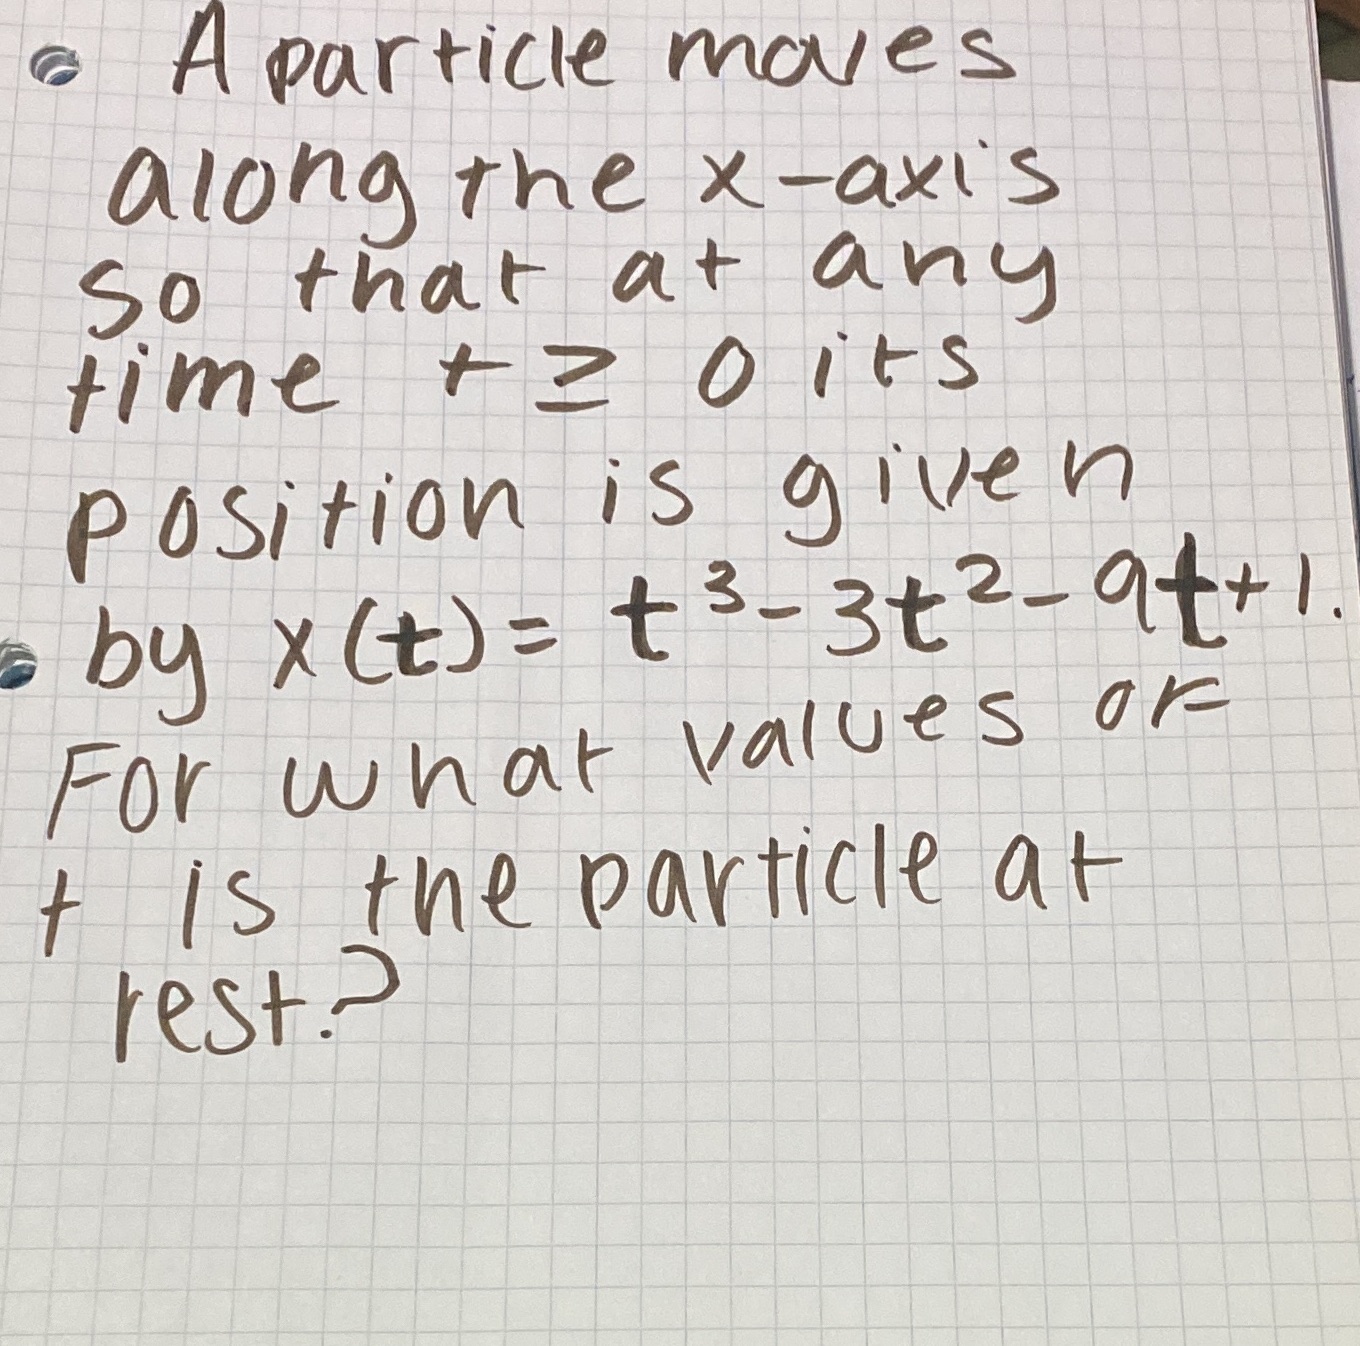 A particle moves
along the x-axis
so that at any
time t ≥ 0 its
position is given
by x(t) = t³ - 3t² - 9t + 1.
For what values of
t is the particle at
rest?